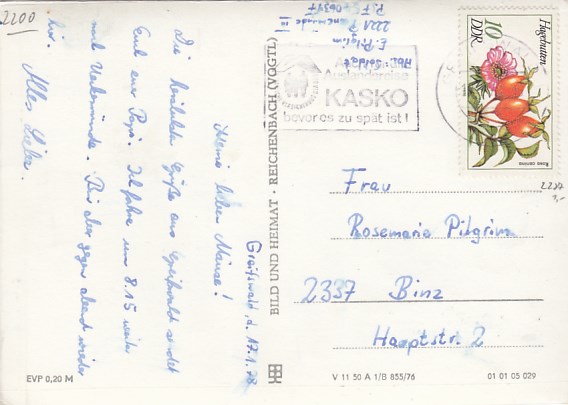 2200
Greifswald, d. 17.1.78
Meine lieben Mäuse!
Die herzlichsten Grüße aus Greifswald sendet
Euch euer Papa. Ich fahre um 8.15 weiter
nach Ueckermünde. Bin aber gegen abend wieder
hier.
Alles Liebe.
EVP 0,20 M
BILD UND HEIMAT · REICHENBACH (VOGTL)
Abs.: Soldat
E. Pilgrim
222
P.F.
Auslandsreise
KASKO
bevor es zu spät ist!
10
DDR
Hagebutten
Rosa canina
2227
Frau
Rosemarie Pilgrim
2337 Binz
Hauptstr. 2
V 11 50 A 1/B 855/76
01 01 05 029